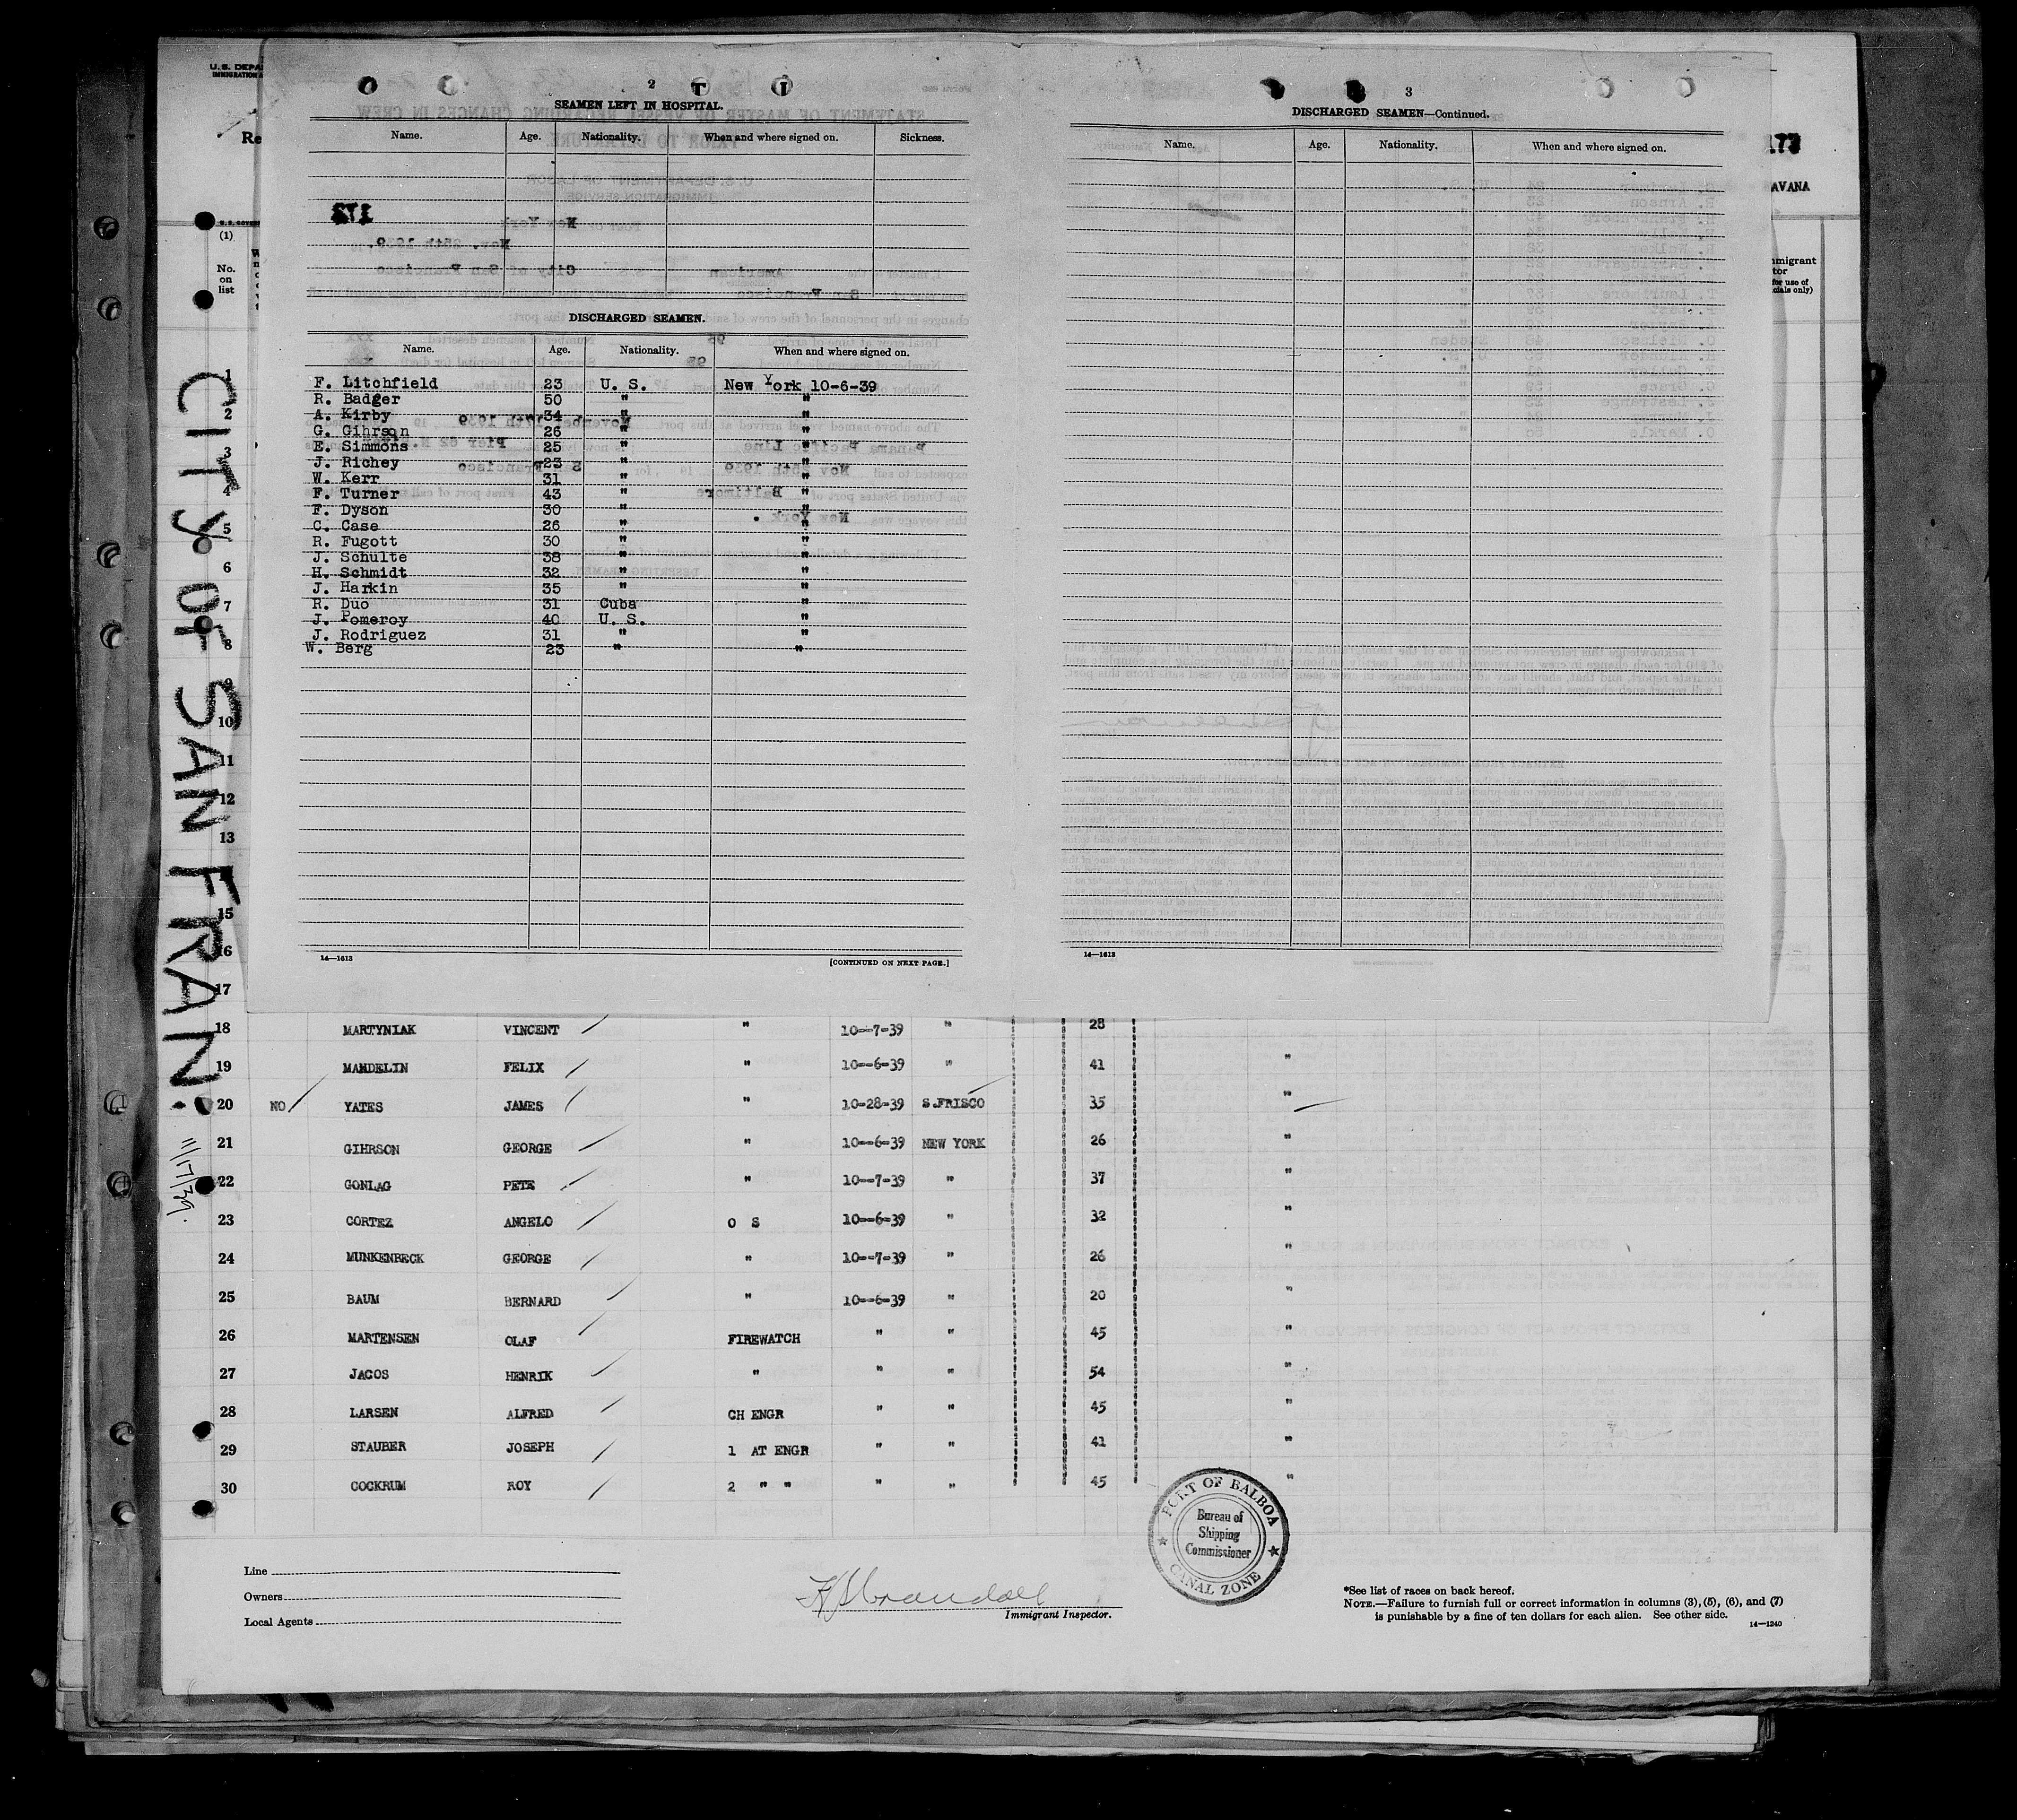 U. S. DEPA
IMMIGRATION
Re
U. S. GOVE
(1)
No.
on
list
2
SEAMEN LEFT IN HOSPITAL.
Name. Age. Nationality. When and where signed on. Sickness.
DISCHARGED SEAMEN.
Name. Age. Nationality. When and where signed on.
F. Litchfield 23 U. S. New York 10-6-39
R. Badger 50 " "
A. Kirby 34 " "
G. Gihrson 26 " "
E. Simmons 25 " "
J. Richey 23 " "
W. Kerr 31 " "
F. Turner 43 " "
F. Dyson 30 " "
C. Case 26 " "
R. Fugott 30 " "
J. Schulte 38 " "
H. Schmidt 32 " "
J. Harkin 35 " "
R. Duo 31 Cuba "
J. Pomeroy 40 U. S. "
J. Rodriguez 31 " "
W. Berg 23 " "
14—1613
[CONTINUED ON NEXT PAGE.]
3
DISCHARGED SEAMEN—Continued.
Name. Age. Nationality. When and where signed on.
14—1613
173
AVANA
mmigrant
tor
for use of
cials only)
CITY OF SAN FRAN.
11/17/39.
1
2
3
4
5
6
7
8
9
10
11
12
13
15
16
17
18 MARTYNIAK VINCENT " 10--7-39 " 28
19 MANDELIN FELIX " 10--6-39 " 41 "
20 NO YATES JAMES " 10-28-39 S.FRISCO 35 "
21 GIHRSON GEORGE " 10--6-39 NEW YORK 26 "
22 GONLAG PETE " 10--7-39 " 37 "
23 CORTEZ ANGELO O S 10--6-39 " 32 "
24 MUNKENBECK GEORGE " 10--7-39 " 26 "
25 BAUM BERNARD " 10--6-39 " 20 "
26 MARTENSEN OLAF FIREWATCH " " 45 "
27 JACOS HENRIK " " " 54 "
28 LARSEN ALFRED CH ENGR " " 45 "
29 STAUBER JOSEPH 1 AT ENGR " " 41 "
30 COCKRUM ROY 2 " " " " 45 "
PORT OF BALBOA
Bureau of
Shipping
Commissioner
CANAL ZONE
Line
Owners
Local Agents
Immigrant Inspector.
*See list of races on back hereof.
NOTE.—Failure to furnish full or correct information in columns (3), (5), (6), and (7)
is punishable by a fine of ten dollars for each alien. See other side.
14—1240